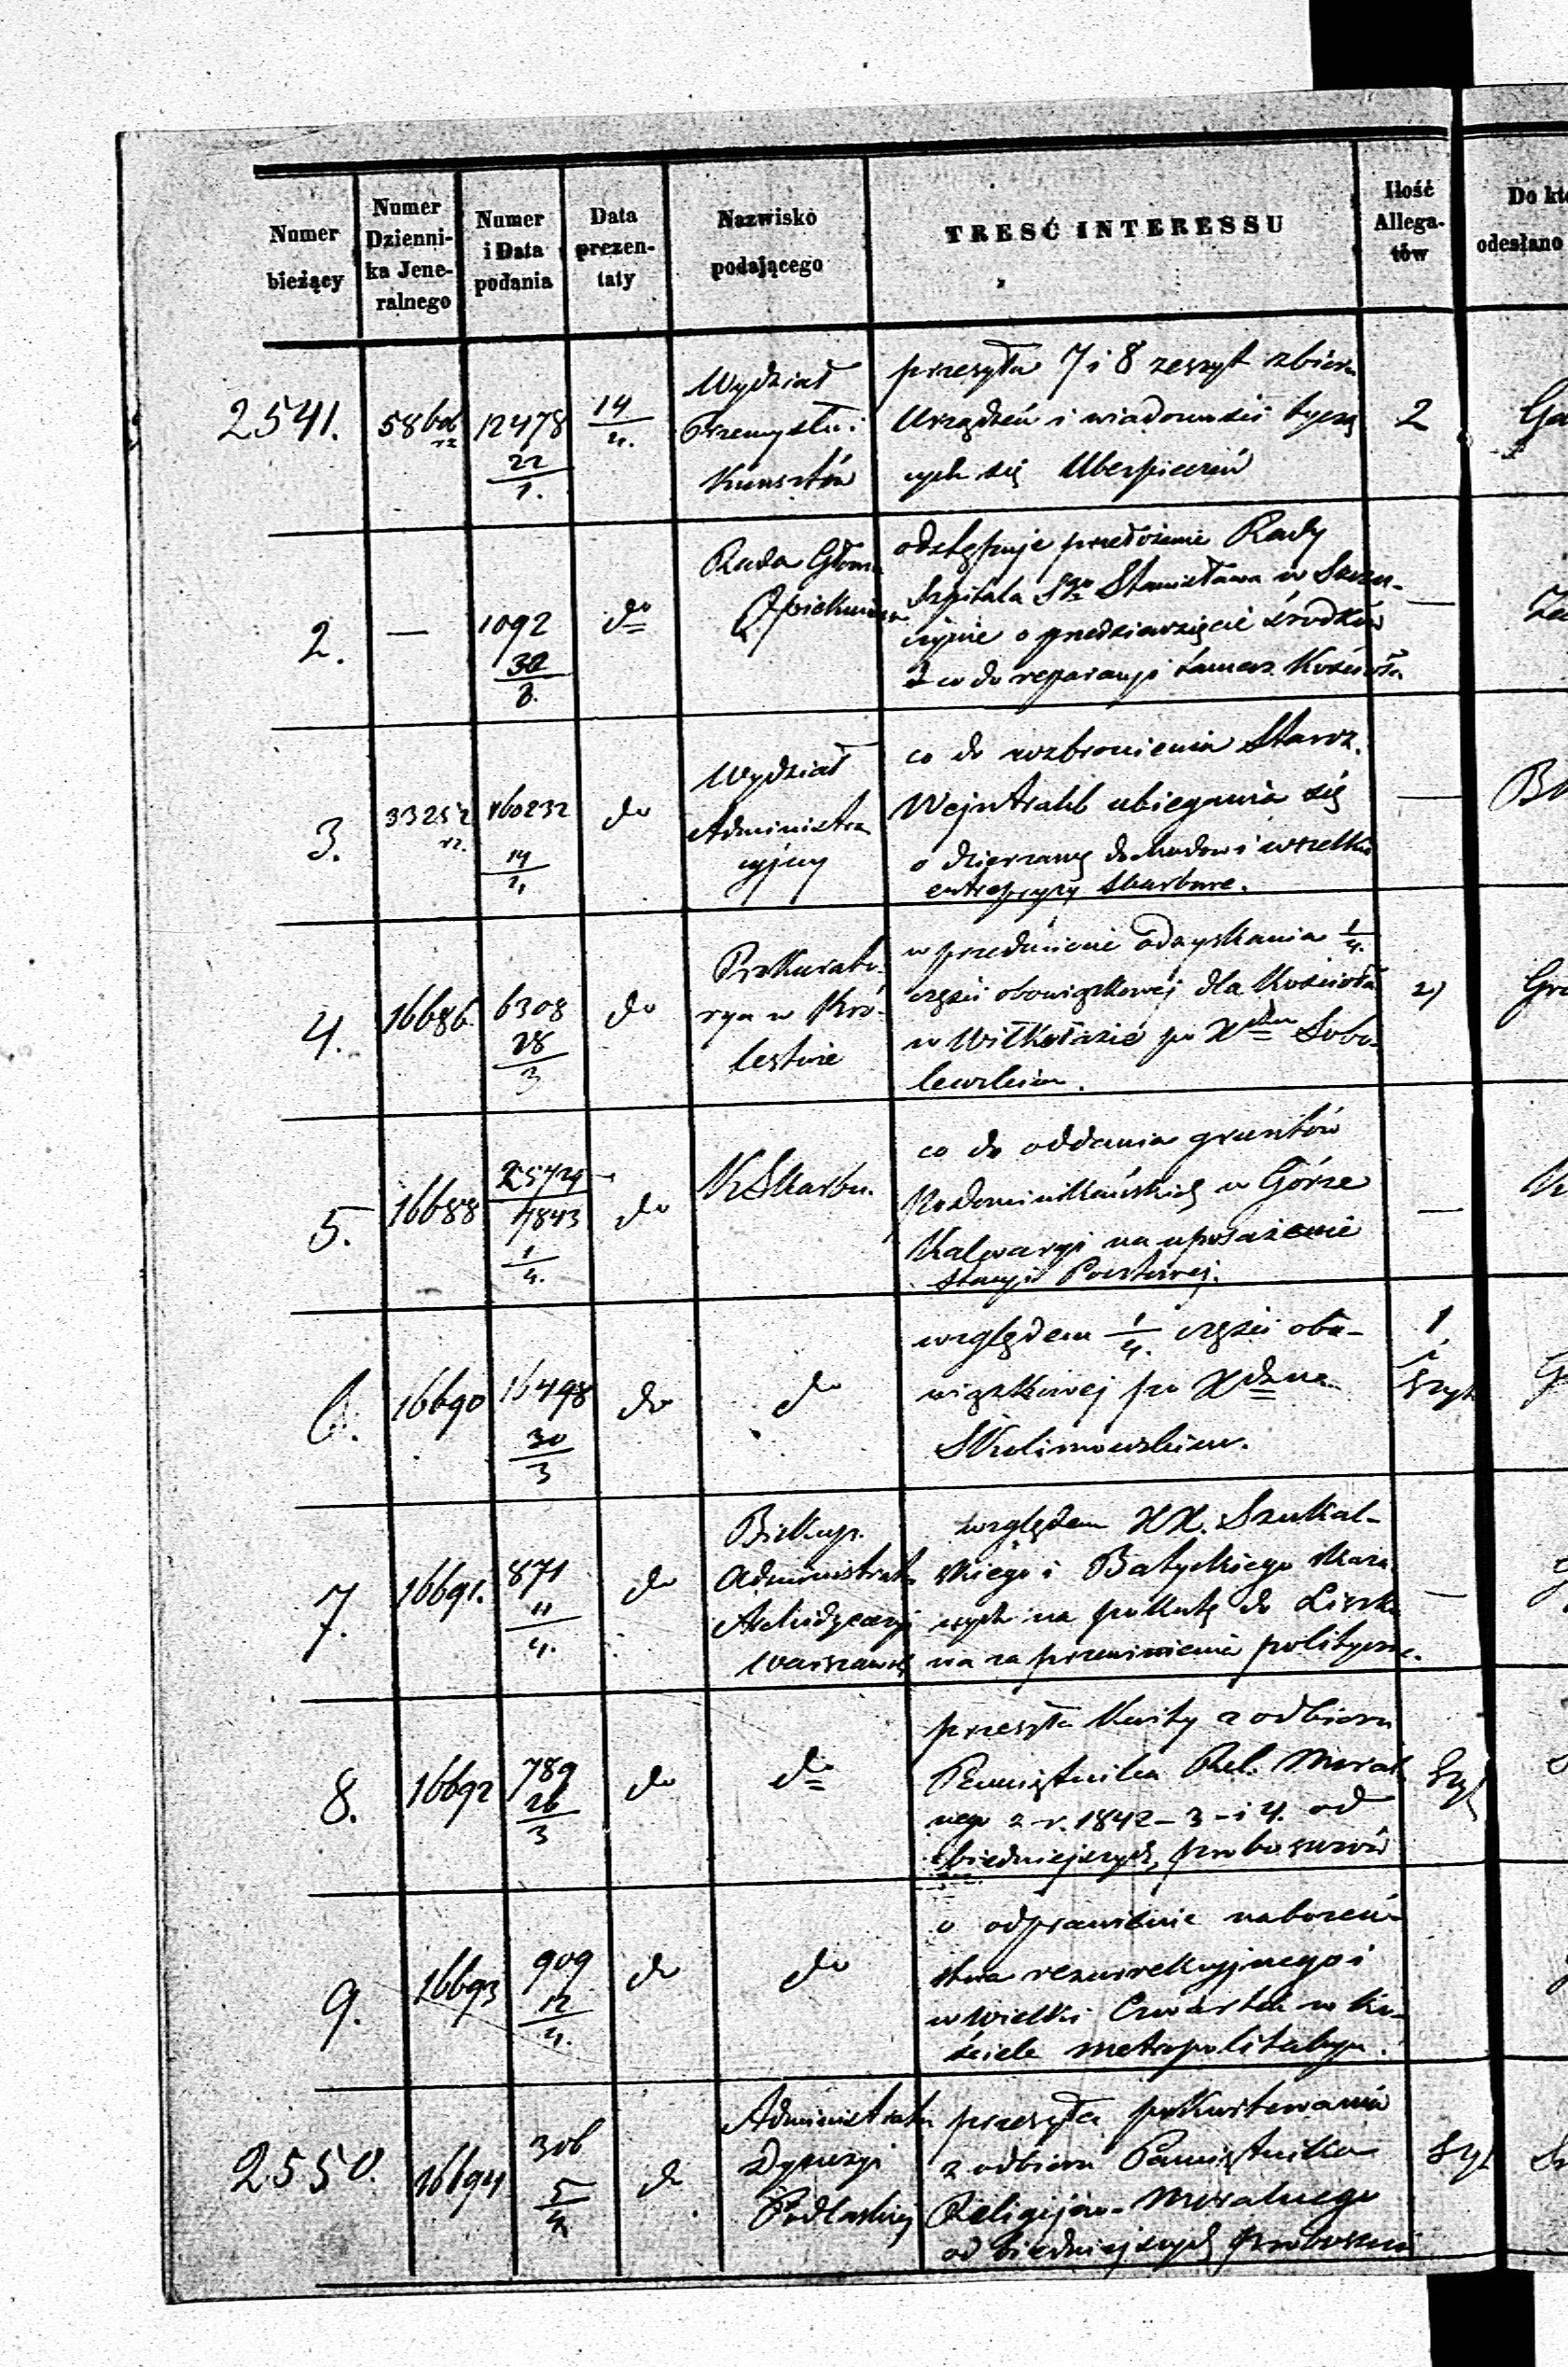 Numer bieżący
Numer Dzienni-ka Jene-ralnego
Numer i Data podania
Data prezen-taty
Nazwisko podającego
TREŚĆ INTERESSU
Ilość Allega-tów
Do kt
odesłano
2541.
12478
22/1.
14/4.
Wydział
Przemysłu i
Kunsztów
przesyła 7 i 8 zeszyt zbioru
Urządzeń i wiadomości tyczą
cych się Ubezpieczeń
2
2.
—
1092
30/3.
do
Rada Główna
Opiekuńcza
odstępuje przełożenie Rady
Szpitala Sgo Stanisława w Szczu-
czynie o przedsięwzięcie środków
co do reparacyi tamecz. Kościoła
—
3.
33252
160232
do
Wydział
Administra
cyjny
co do wzbronienia Staroz.
Wejntraub ubiegania się
o dzierżawę dochodów i wszelkie
entrepryzy skarbowe.
—
4.
16686
6308
28/3
do
Prokurato-
rya w Kró-
lestwie
w przedmiocie odzyskania 1/4.
części obowiązkowej dla Kościoła
w Wilkołazie po Xdzu Sobo-
lewskim.
2)
5.
16688
25724
1843
1/4.
do
K. Skarbu.
co do oddania gruntów
Podominikańskich w Górze
Kalwaryi na uposażenie
Stacyi Pocztowej.
—
6.
16690
16498
30/3
do
do
względem 1/4. części obo-
wiązkowej po Xdzu
Skolimowskim.
1
i
Szyt
7.
16691.
871
11/4.
do
Biskup.
Administrator
Archidyecezyi
Warszawsk
względem XX. Szukal-
skiego i Batyckiego skaza
nych na pokutę do Liszko
wa za przewinienia polityczne.
—
8.
16692
789
26/3
do
do
przesyła kwity z odbioru
Pamiętnika Rel. Moral
nego z r. 1842-3-i 4. od
biedniejszych proboszczów
Szyt
9.
16693
909
12/4.
do
do
o odprawienie nabożeń-
stwa rezurrekcyjnego i
w Wielki Czwartek w Ko-
ściele metropolitalnym.
2550.
16694
306
5/4
do
Administrator
Dyecezyi
Podlaskiej
przesyła pokwitowania
z odbioru Pamiętnika
Religijno-Moralnego
od biedniejszych proboszczów
Szyt